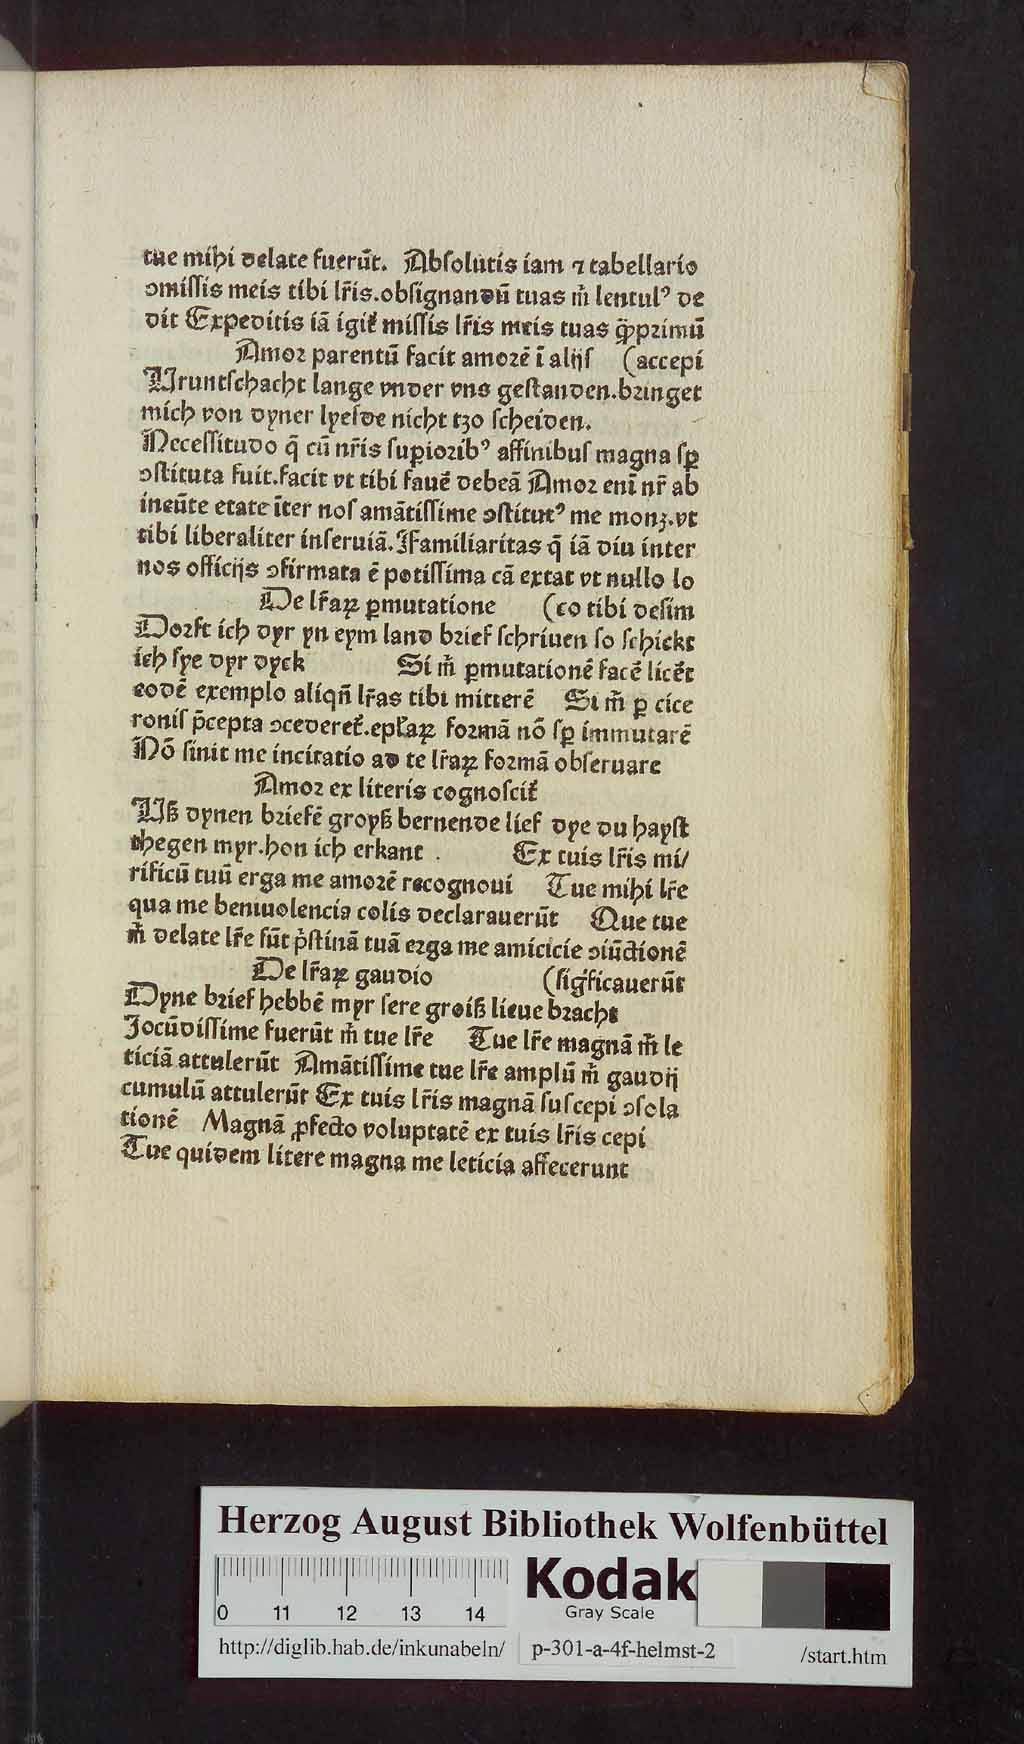 tue mihi delate fuerūt. Absolutis iam ⁊ tabellario
ꝯmissis meis tibi lr̄is.obsignandū tuas m̄ lentulꝰ de
dit Expeditis iā igit᷑ missis lr̄is meis tuas q̄ꝑprimū
Amor parentū facit amorē ī alijs (accepi
Vruntschacht lange vnder vns gestanden.bringet
mich von dyner lyesde nicht tzo scheiden.
Necessitudo q̄ cū nr̄is suꝑioribꝰ affinibus magna sꝑ
ꝯstituta fuit.facit vt tibi fauē debeā Amor enī nr̄ ab
ineūte etate īter nos amātissime ꝯstitutꝰ me monꝫ.vt
tibi liberaliter inseruiā.Familiaritas q̄ iā diu inter
nos officijs ꝯfirmata ē potissima cā extat vt nullo lo
De lr̄aꝝ ꝑmutatione (co tibi desim
Dorft ich dyr yn eym land brief schriuen so schickt
ich sye dyr dyck Si m̄ ꝑmutationē facē licēt
eodē exemplo aliqn̄ lr̄as tibi mitterē Si m̄ ꝑ cice
ronis p̄cepta ꝯcederet᷑.epl̄aꝝ formā nō sꝑ immutarē
Nō sinit me incitatio ad te lr̄aꝝ formā obseruare
Amor ex literis cognoscit᷑
Uß dynen briefē groyß bernende lief dye du hayst
thegen myr.hon ich erkant . Ex tuis lr̄is mi/
rificū tuū erga me amorē recognoui Tue mihi lr̄e
qua me beniuolencia colis declarauerūt Que tue
m̄ delate lr̄e fūt p̓stinā tuā erga me amicicie ꝯiūctionē
De lr̄aꝝ gaudio (sig̓ficauerūt
Dyne brief hebbē myr sere groiß lieue bracht
Jocūdissime fuerūt m̄ tue lr̄e Tue lr̄e magnā m̄ le
ticiā attulerūt Amātissime tue lr̄e amplū m̄ gaudij
cumulū attulerūt Ex tuis lr̄is magnā suscepi ꝯsola
tionē Magnā ꝓfecto voluptatē ex tuis lr̄is cepi
Tue quidem litere magna me leticia affecerunt
Herzog August Bibliothek Wolfenbüttel
Kodak
Gray Scale
0 11 12 13 14
http://diglib.hab.de/inkunabeln/ p-301-a-4f-helmst-2 /start.htm